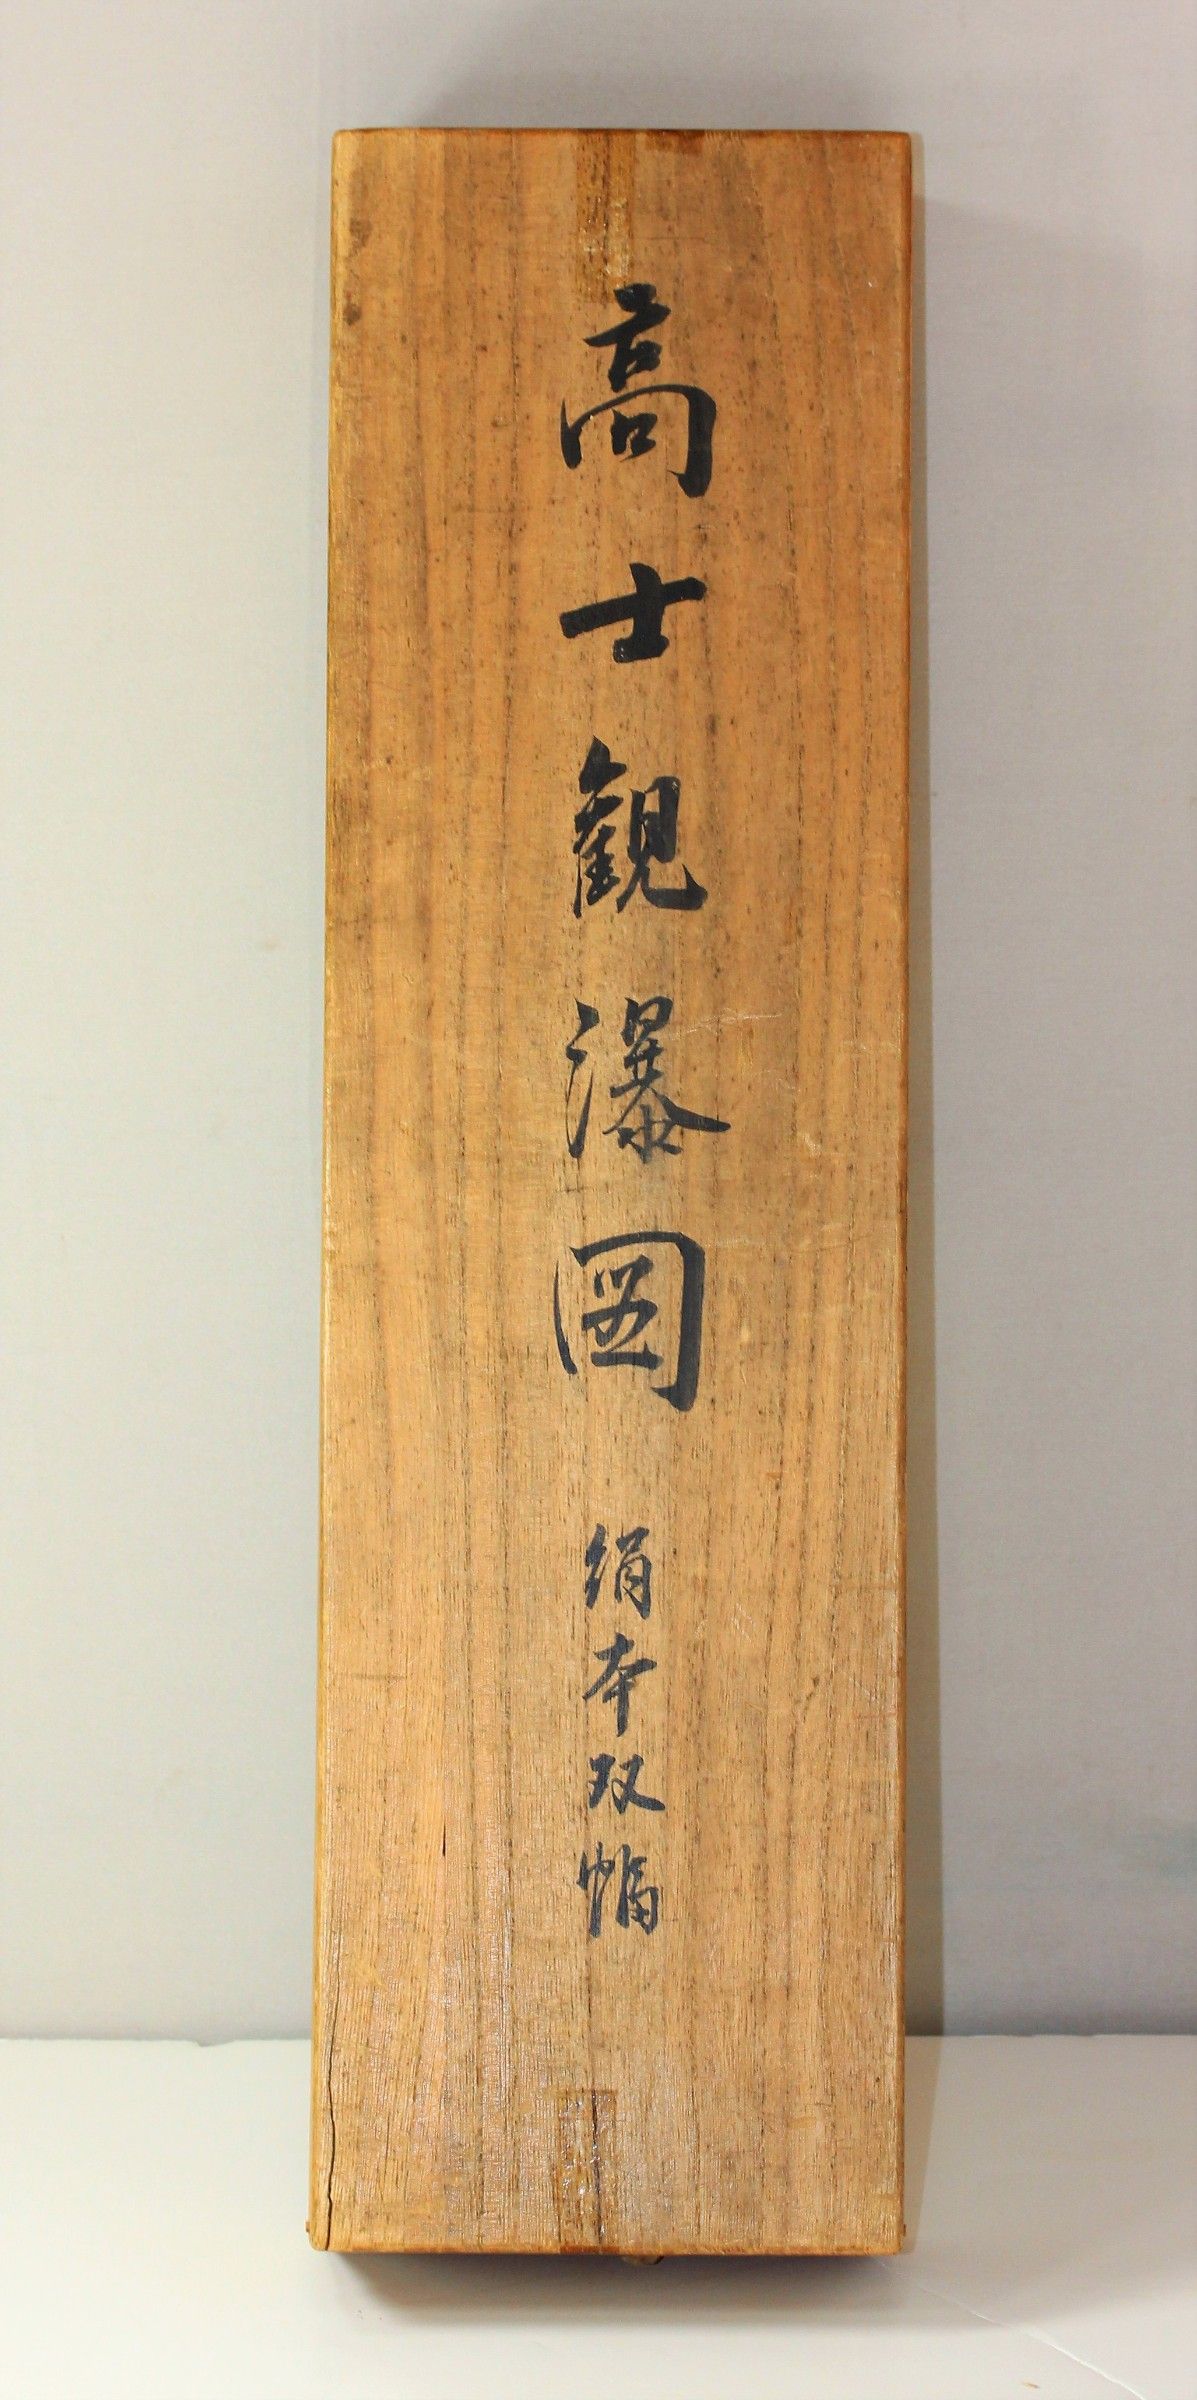 高士観瀑図 絹本双幅